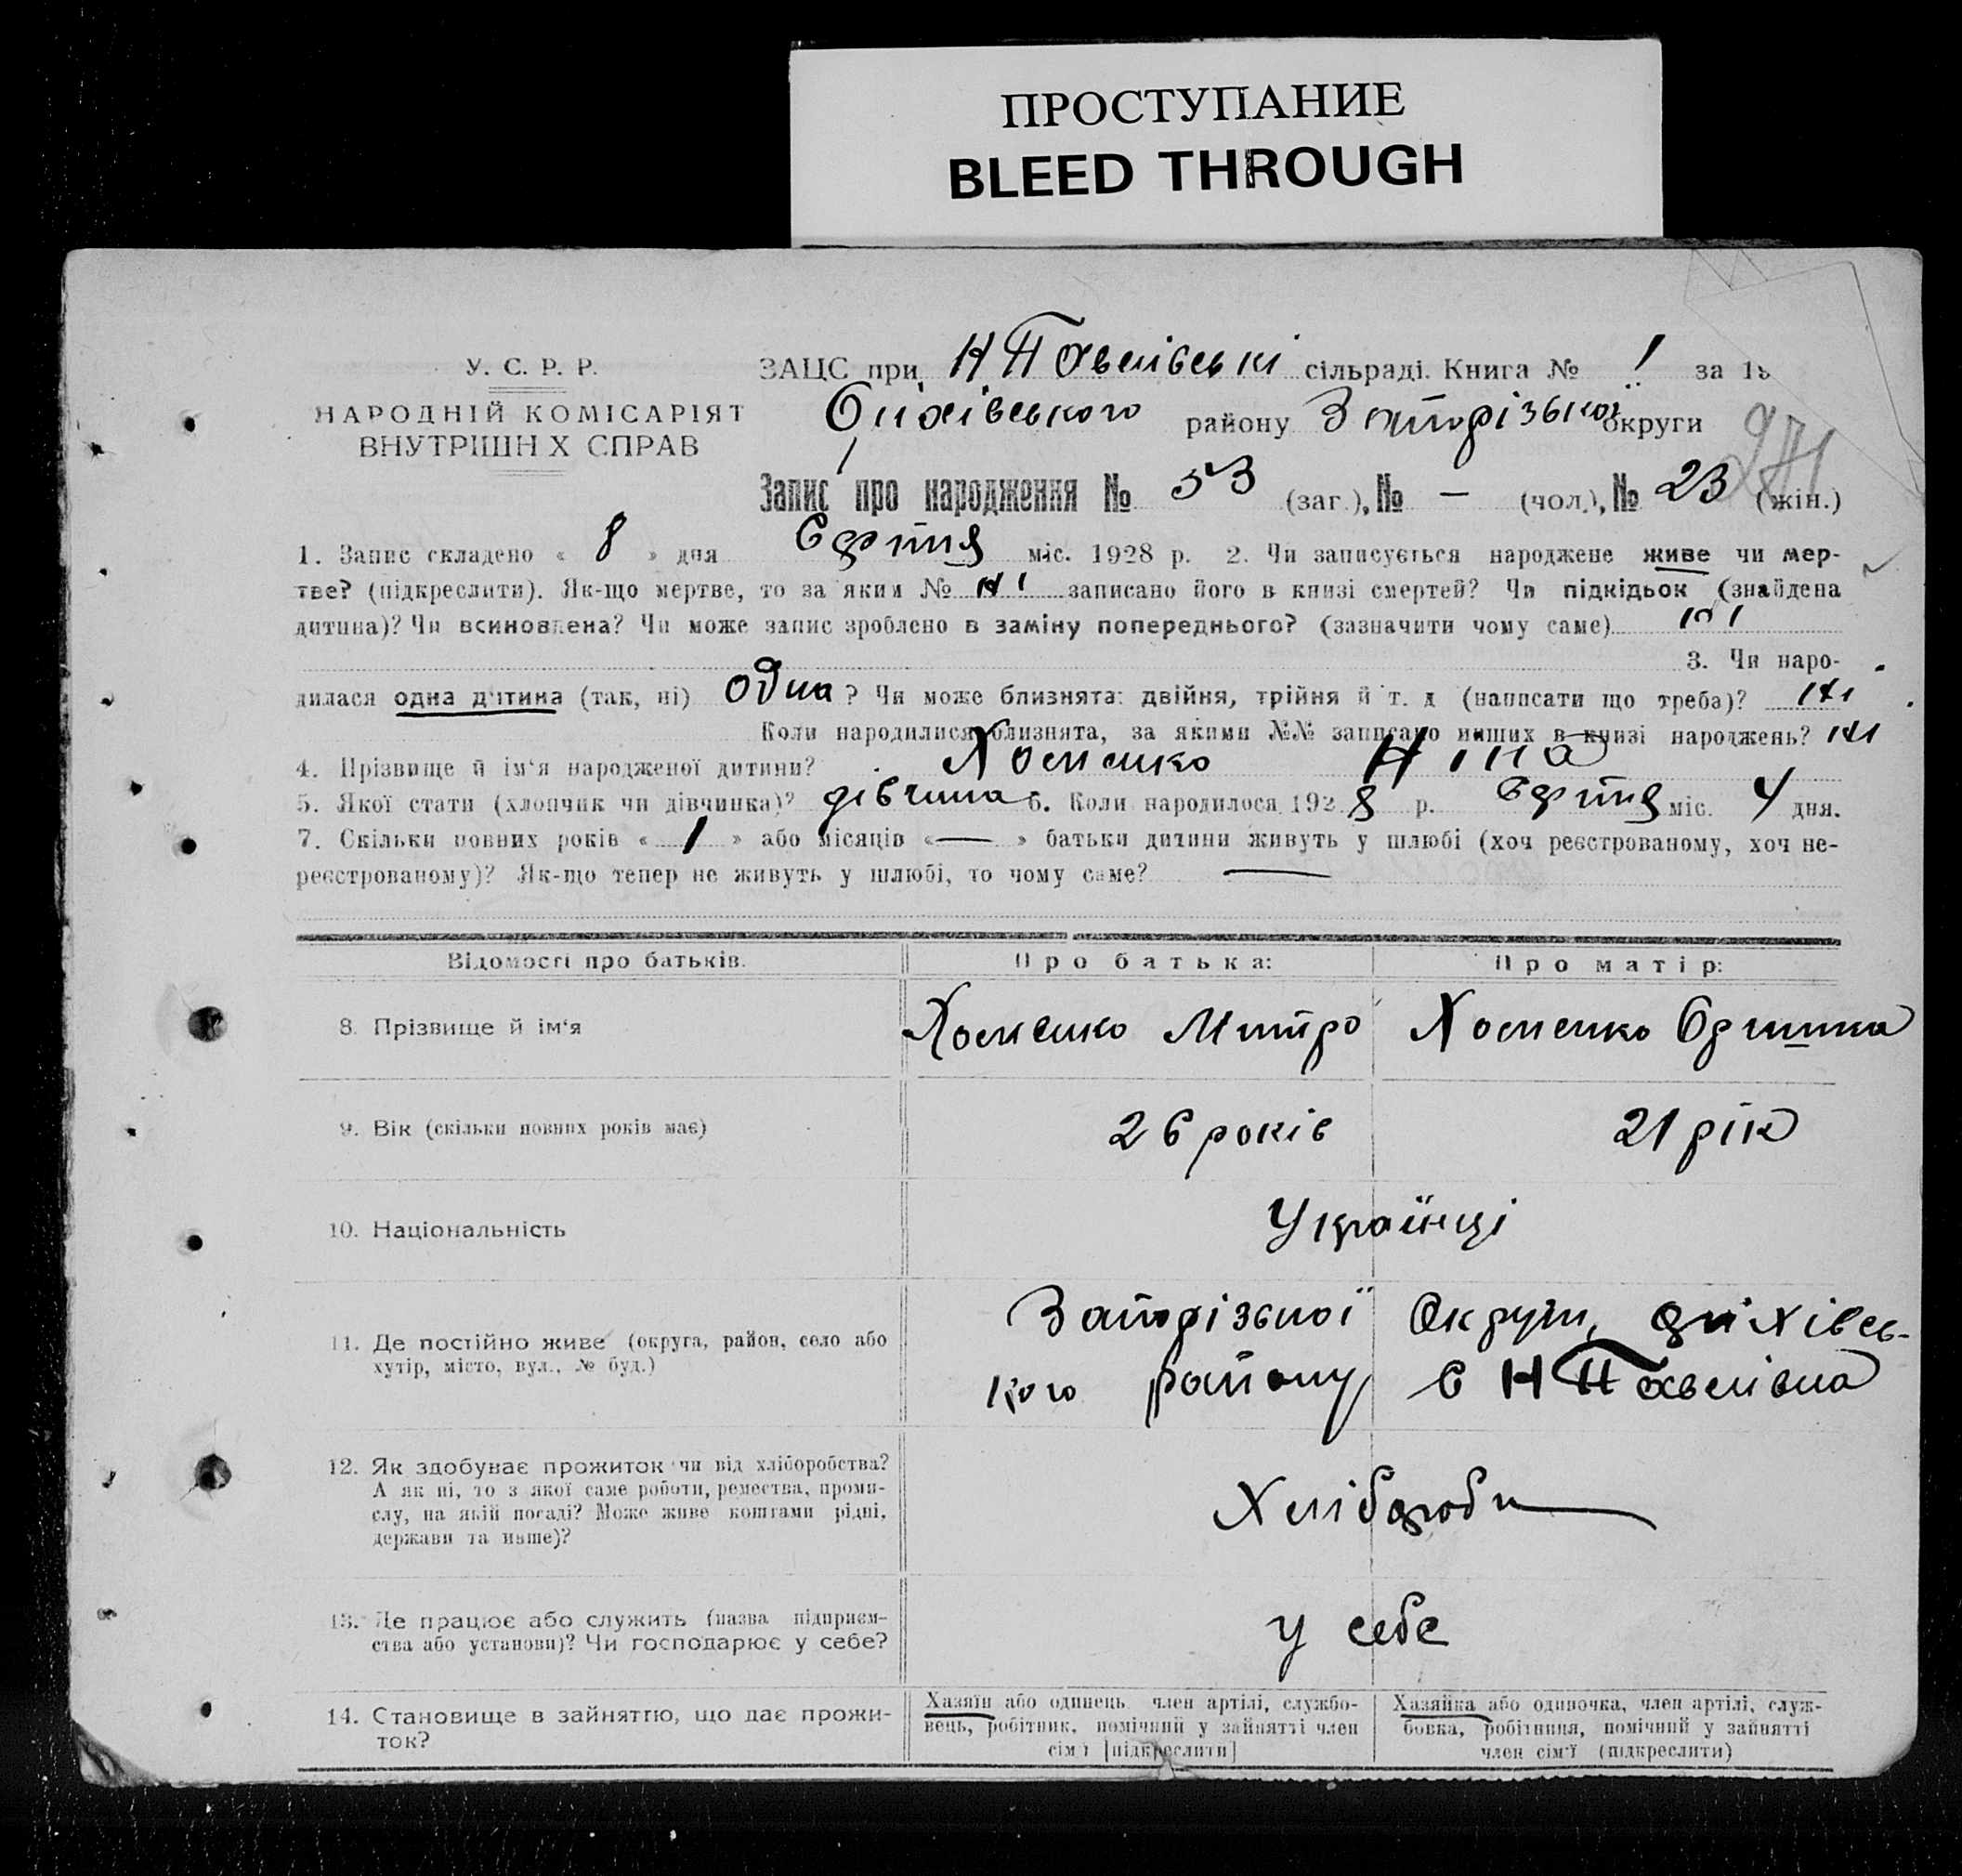 ПРОСТУПАНИЕ
BLEED THROUGH
У. С. Р. Р.
НАРОДНІЙ КОМІСАРІЯТ
ВНУТРІШН Х СПРАВ
ЗАЦС при Н Павлівські сільраді. Книга № 1 за 1
Оріхівського району Запорізької округи
271
Запис про народження № 53 (заг.), № — (чол.), № 23 (жін.)
1. Запис складено « 8 » дня Серпня міс. 1928 р. 2. Чи записується народжене живе чи мер-
тве? (підкреслити). Як-що мертве, то за яким № ні записано його в книзі смертей? Чи підкідьок (знайдена
дитина)? Чи всиновлена? Чи може запис зроблено в заміну попереднього? (зазначити чому саме) ні
3. Чи наро-
дилася одна дитина (так, ні) одна ? Чи може близнята: двійня, трійня й т. д (написати що треба)? ні
Коли народилися близнята, за якими №№ записано инших в книзі народжень? ні
4. Прізвище й ім'я народженої дитини? Хоменко Ніна
5. Якої стати (хлопчик чи дівчинка)? дівчина 6. Коли народилося 1928 р. Серпня міс. 4 дня.
7. Скільки повних років « 1 » або місяців « — » батьки дитини живуть у шлюбі (хоч реєстрованому, хоч не-
реєстрованому)? Як-що тепер не живуть у шлюбі, то чому саме? —
Відомості про батьків. Про батька: Про матір:
8. Прізвище й ім'я Хоменко Митро Хоменко Оришка
9. Вік (скільки повних років має) 26 років 21 рік
10. Національність Українці
11. Де постійно живе (округа, район, село або
хутір, місто, вул., № буд.)
Запорізької Округи, Оріхівсь-
кого району С Н Павлівка
12. Як здобуває прожиток чи від хліборобства?
А як ні, то з якої саме роботи, ремества, проми-
слу, на якій посаді? Може живе коштами рідні,
держави та инше)?
Хлібороби
13. Де працює або служить (назва підприєм-
ства або установи)? Чи господарює у себе?
у себе
14. Становище в зайняттю, що дає прожи-
ток?
Хазяїн або одинець, член артілі, службо-
вець, робітник, помічний у зайнятті член
сім'ї [підкреслити]
Хазяйка або одиночка, член артілі, служ-
бовка, робітниця, помічний у зайнятті
член сім'ї (підкреслити)